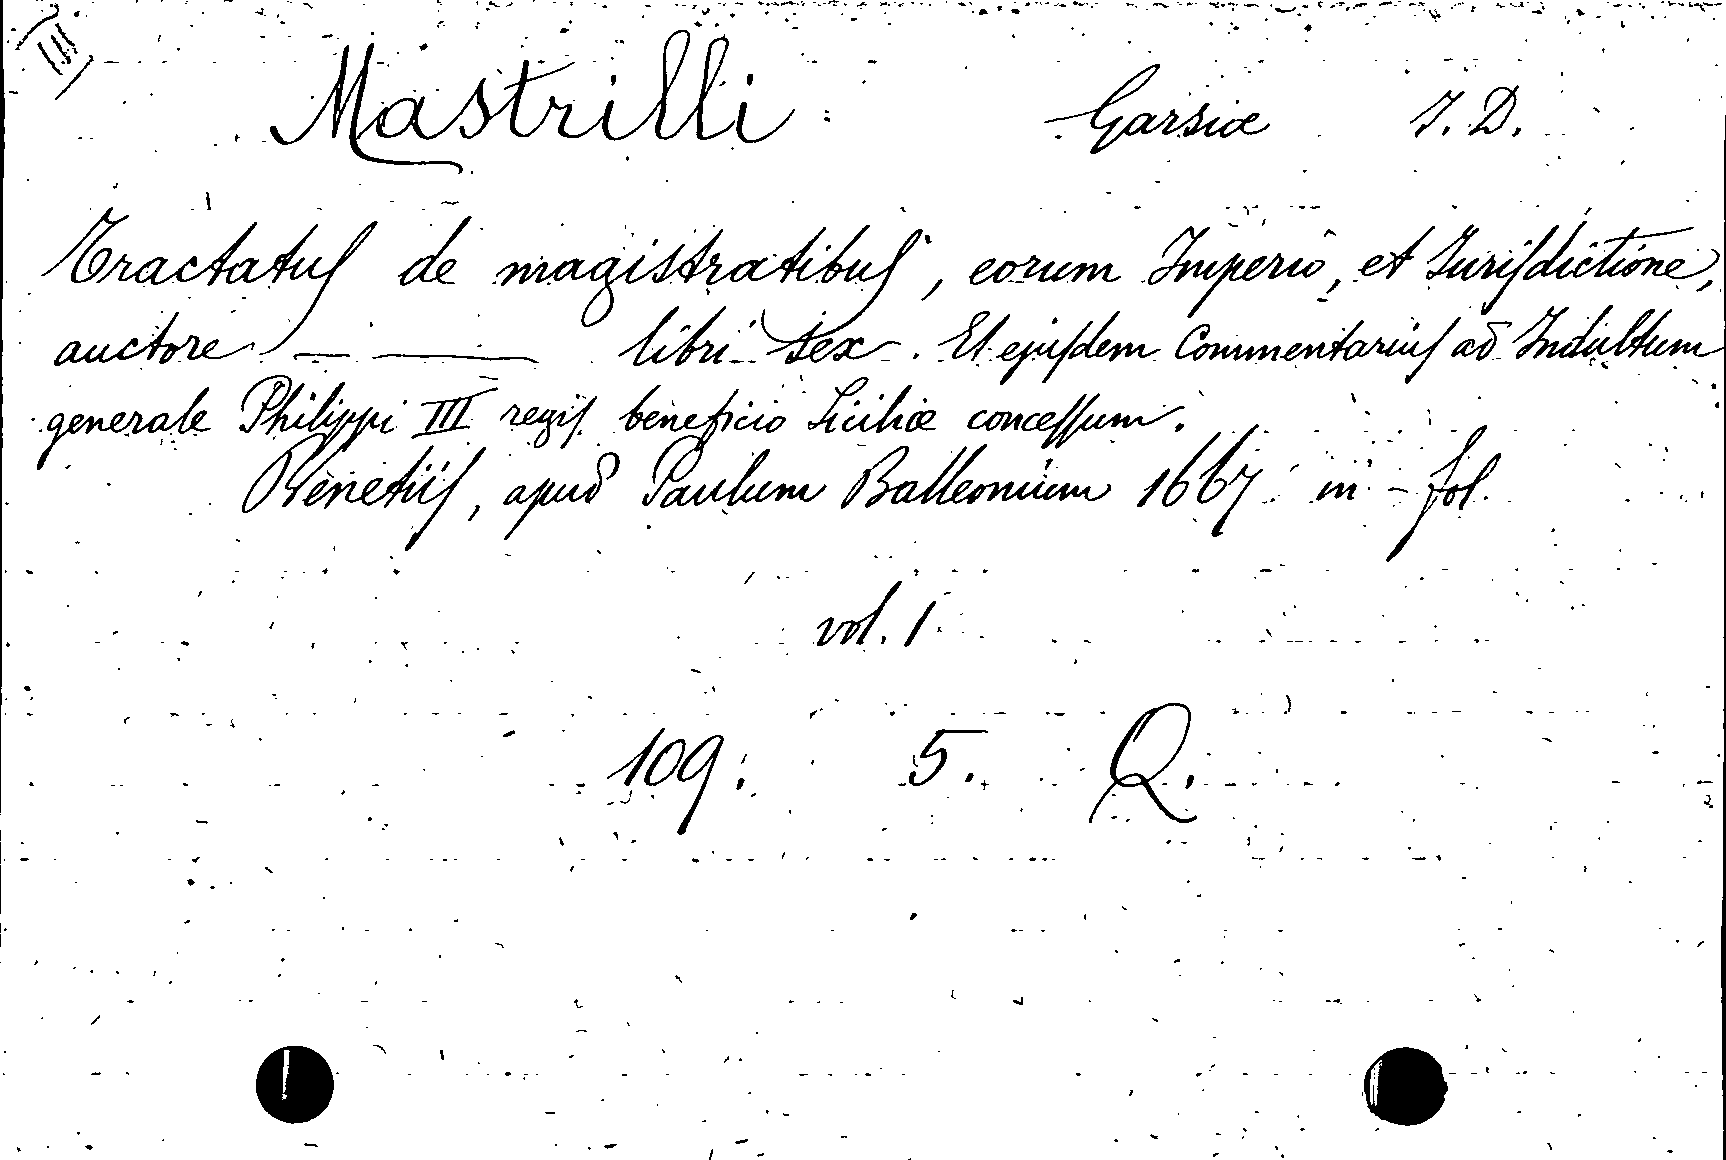 III
Mastrilli Garsiæ J. D.
Tractatuſ de magistratibuſ, eorum Imperio, et Juriſdictione,
auctore — —— libri sex. Et ejuſdem Commentariuſ ad Indultum
generale Philippi III regiſ beneficio Siciliæ conceſſum.
Venetiiſ, apud Paulum Balleonium 1667 in-fol.
vol. 1
109. 5. Q.